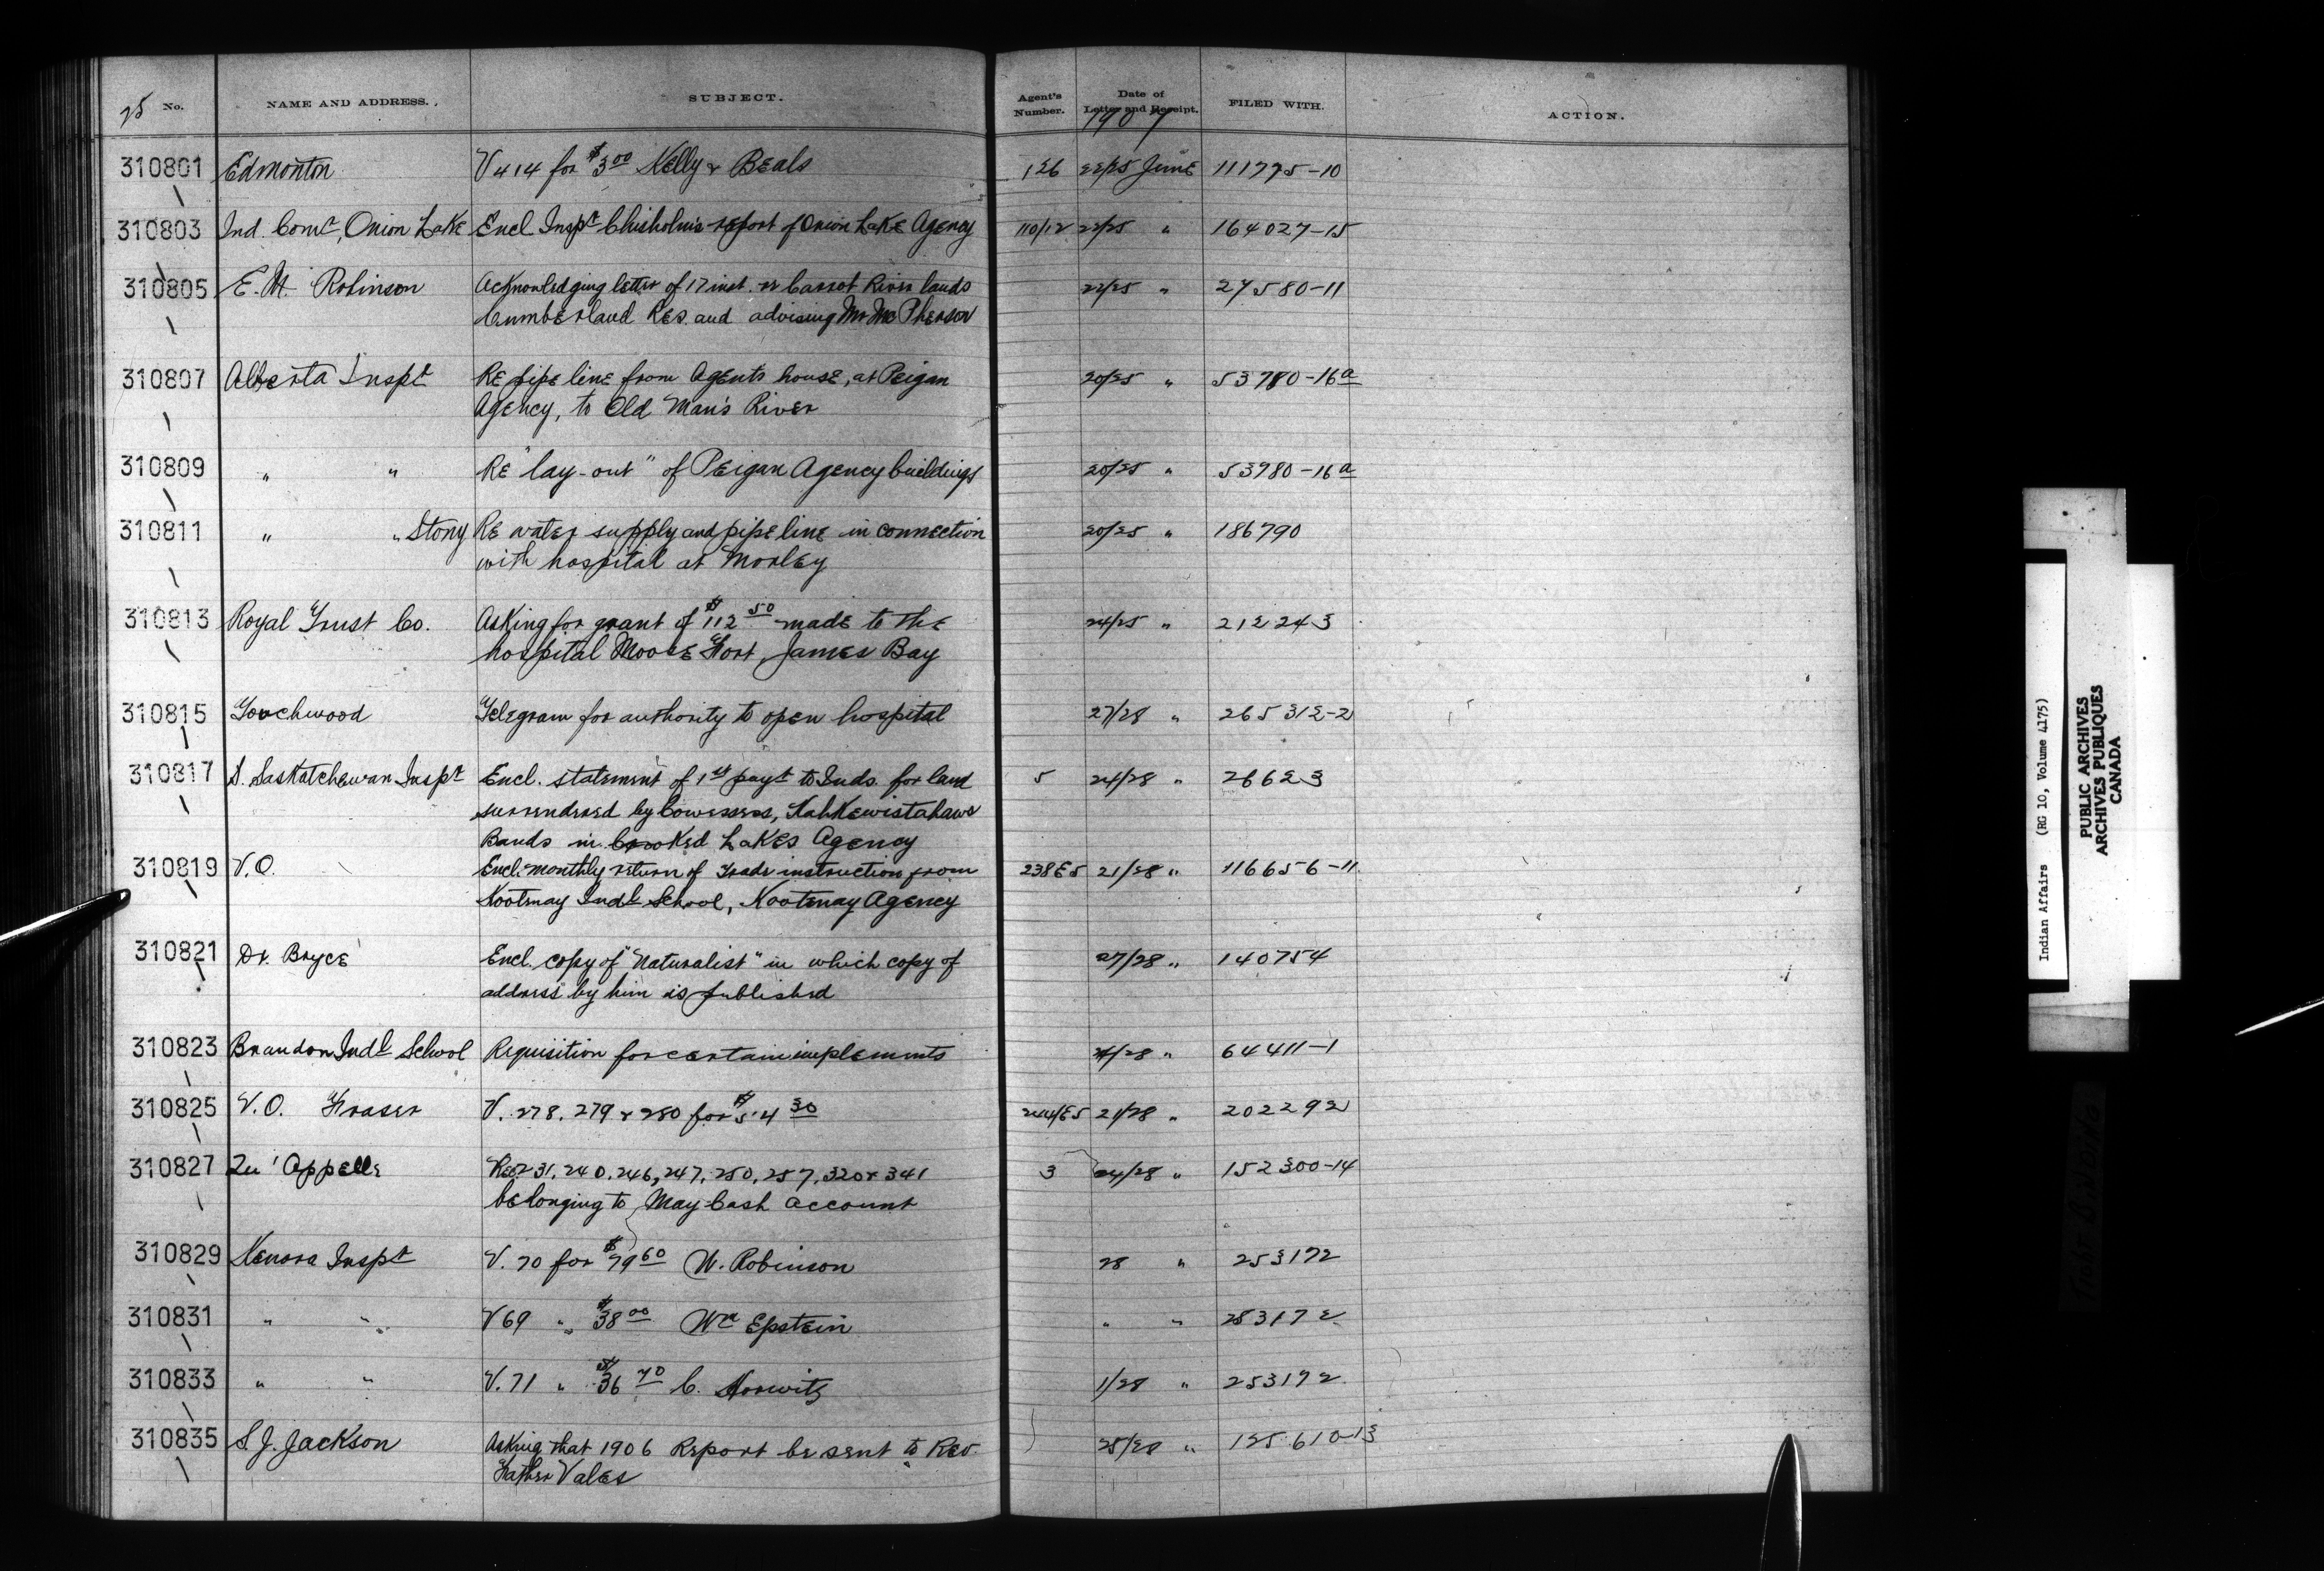 25 No. NAME AND ADDRESS. SUBJECT. Agent's Number. Date of Letter and Receipt. FILED WITH. ACTION.
1907
310801 Edmonton V 414 for $3 00 Kelly & Beals 126 22/25 June 111775-10
310803 Ind. Comr, Onion Lake Encl Inspt Chisholm's report of Onion Lake Agency 110/12 22/25 " 164027-15
310805 E. M. Robinson Acknowledging letter of 17 inst. re Carrot River lands 22/25 " 27580-11
Cumberland Res. and advising Mr McPherson
310807 Alberta Inspt Re pipe line from Agents house, at Peigan 20/25 " 53780-16a
Agency, to Old Man's River
310809 " " Re "lay-out" of Peigan Agency buildings 20/25 " 53980-16a
310811 " " Stony Re water supply and pipe line in connection 20/25 " 186790
with hospital at Morley
310813 Royal Trust Co. Asking for grant of $112 50 made to the 24/25 " 212243
hospital Moose Fort James Bay
310815 Touchwood Telegram for authority to open hospital 27/28 " 265312-2
310817 S. Saskatchewan Inspt Encl. statement of 1st payt to Inds. for land 5 24/28 " 26623
surrendered by Cowesess, Kahkewistahaws
Bands in Crooked Lakes Agency
310819 V.O. Encl. monthly return of trade instruction from 238E5 21/28 " 116656-11
Kootenay Indl School, Kootenay Agency
310821 Dr. Bryce Encl. copy of "Naturalist" in which copy of 27/28 " 140754
address by him is published
310823 Brandon Indl School Requisition for certain implements /28 " 64411-1
310825 V.O. Fraser V. 278. 279 & 280 for $54 30 244/E5 21/28 " 202292
310827 Qu'Appelle Re 231. 240. 246, 247. 250. 257. 320 & 341 3 24/28 " 152300-14
belonging to May Cash account
310829 Kenora Inspt V. 70 for $79 60 W. Robinson 28 " 253172
310831 " " V 69 " $38 00 Wm Epstein " " 253172
310833 " " V. 71 " $36 70 C. Horwitz 1/28 " 253172
310835 S. J. Jackson Asking that 1906 Report be sent to Rev. 25/28 " 125610-13
Father Vales
Indian Affairs (RG 10, Volume 4175)
PUBLIC ARCHIVES
ARCHIVES PUBLIQUES
CANADA